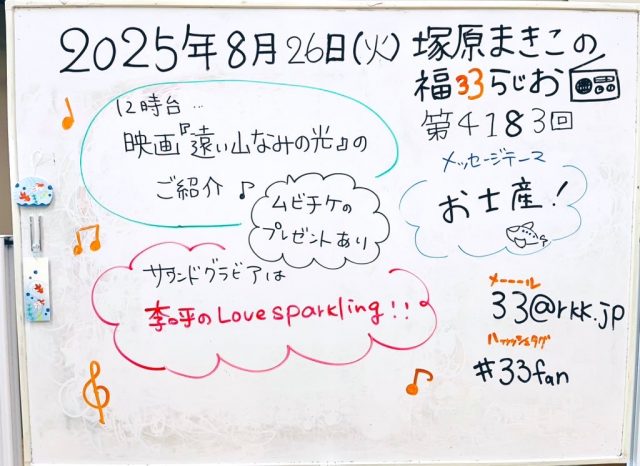 2025年8月26日(火) 塚原まきこの
福33らじお
第4183回
12時台…
映画『遠い山なみの光』の
ご紹介♪
ムビチケの
プレゼントあり
メッセージテーマ
お土産!
サウンドグラビアは
のLove sparkling!!
メーーール
33@rkk.jp
ハッシュタグ
#33fan